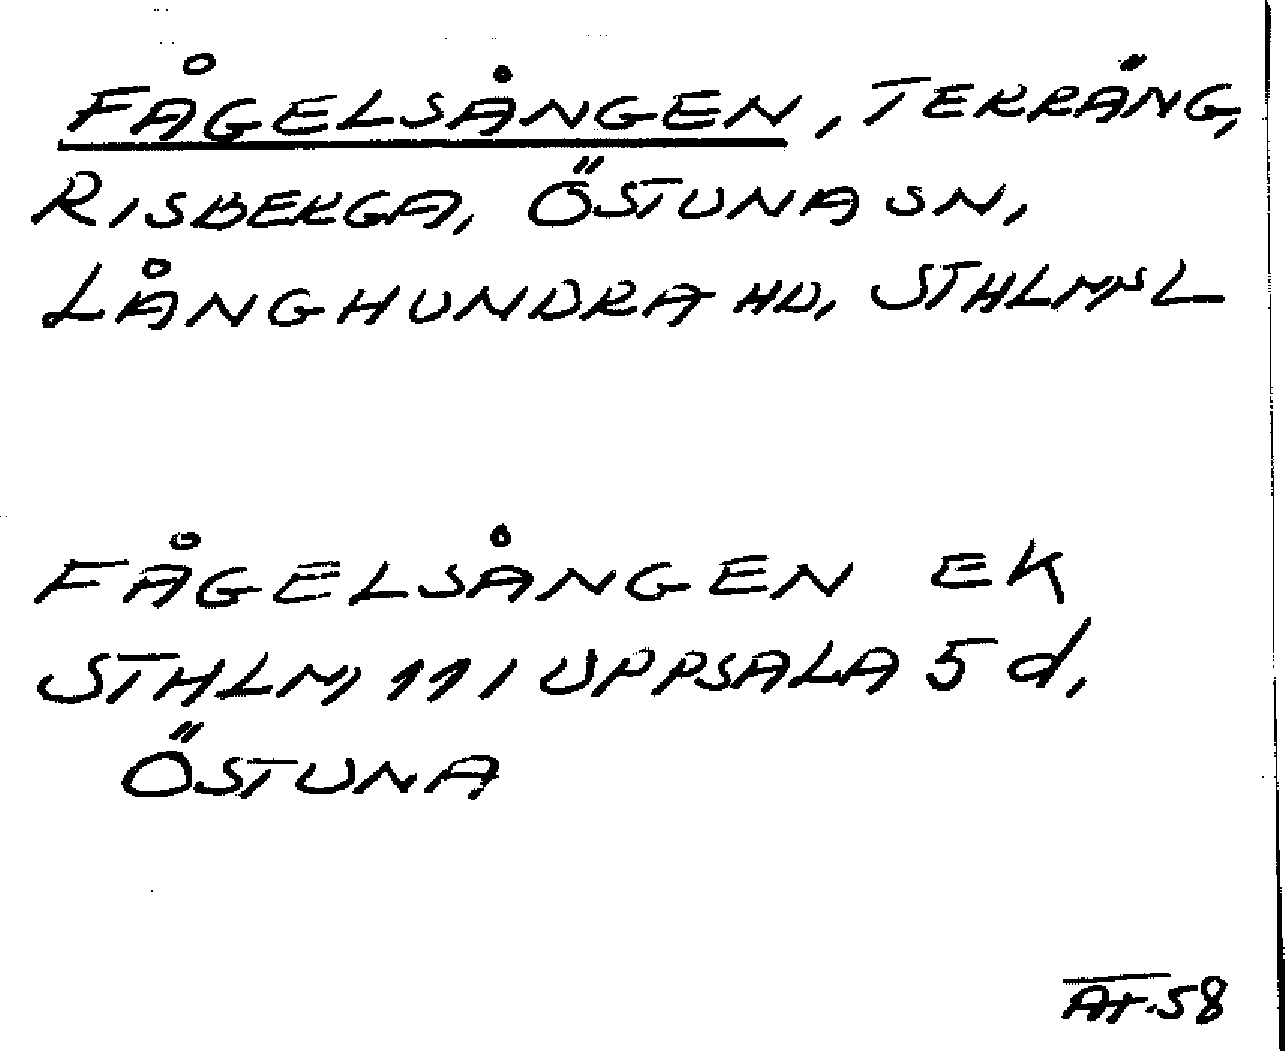 FÅGELSÅNGEN, TERRÄNG,
RISBERGA, ÖSTUNA SN,
LÅNGHUNDRA HD, STHLMS L
FÅGELSÅNGEN EK
STHLM, 111 UPPSALA 5 d,
ÖSTUNA
AT.58